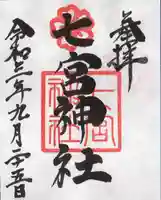 奉拝
七宮神社
令和三年九月二十五日